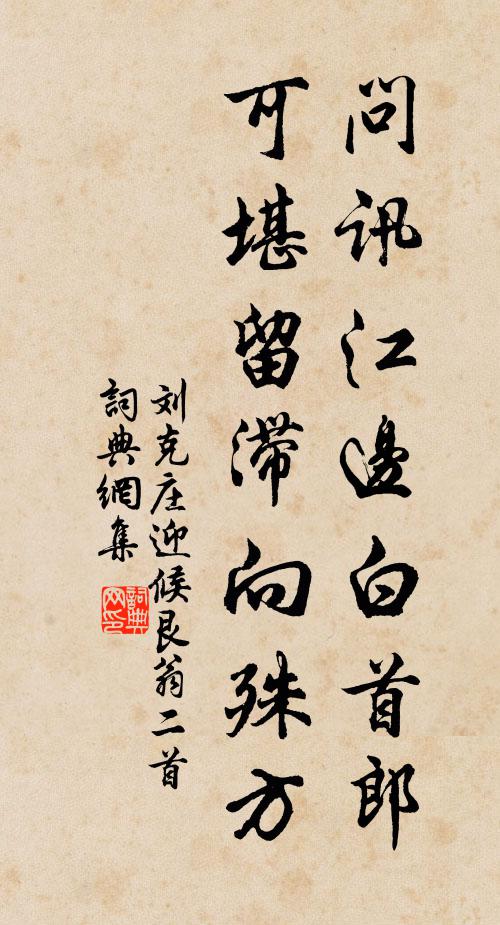 問訊江邊白首郎
可堪留滯向殊方
刘克庄迎候艮翁二首
詞典網集
詞典网印